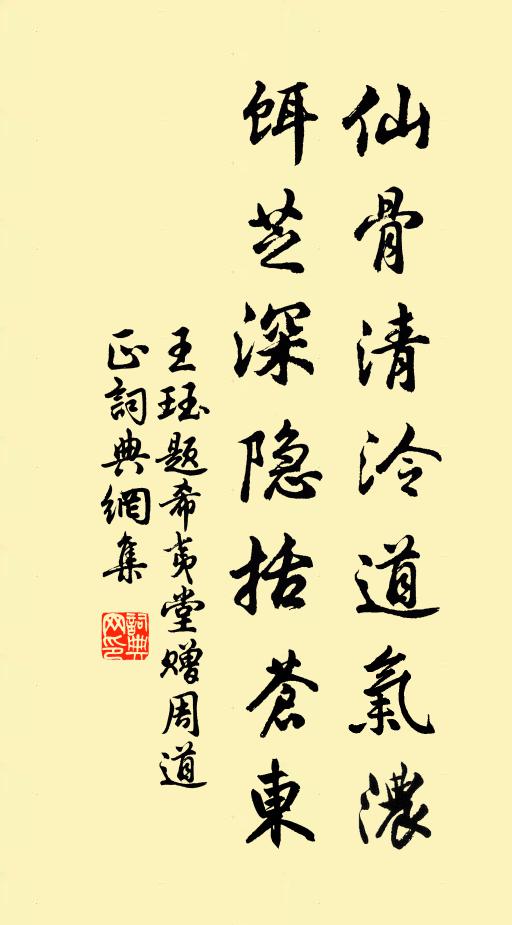 仙骨清泠道氣濃
餌芝深隐括蒼東
王珏题希夷堂赠周道
正詞典網集
詞典网印